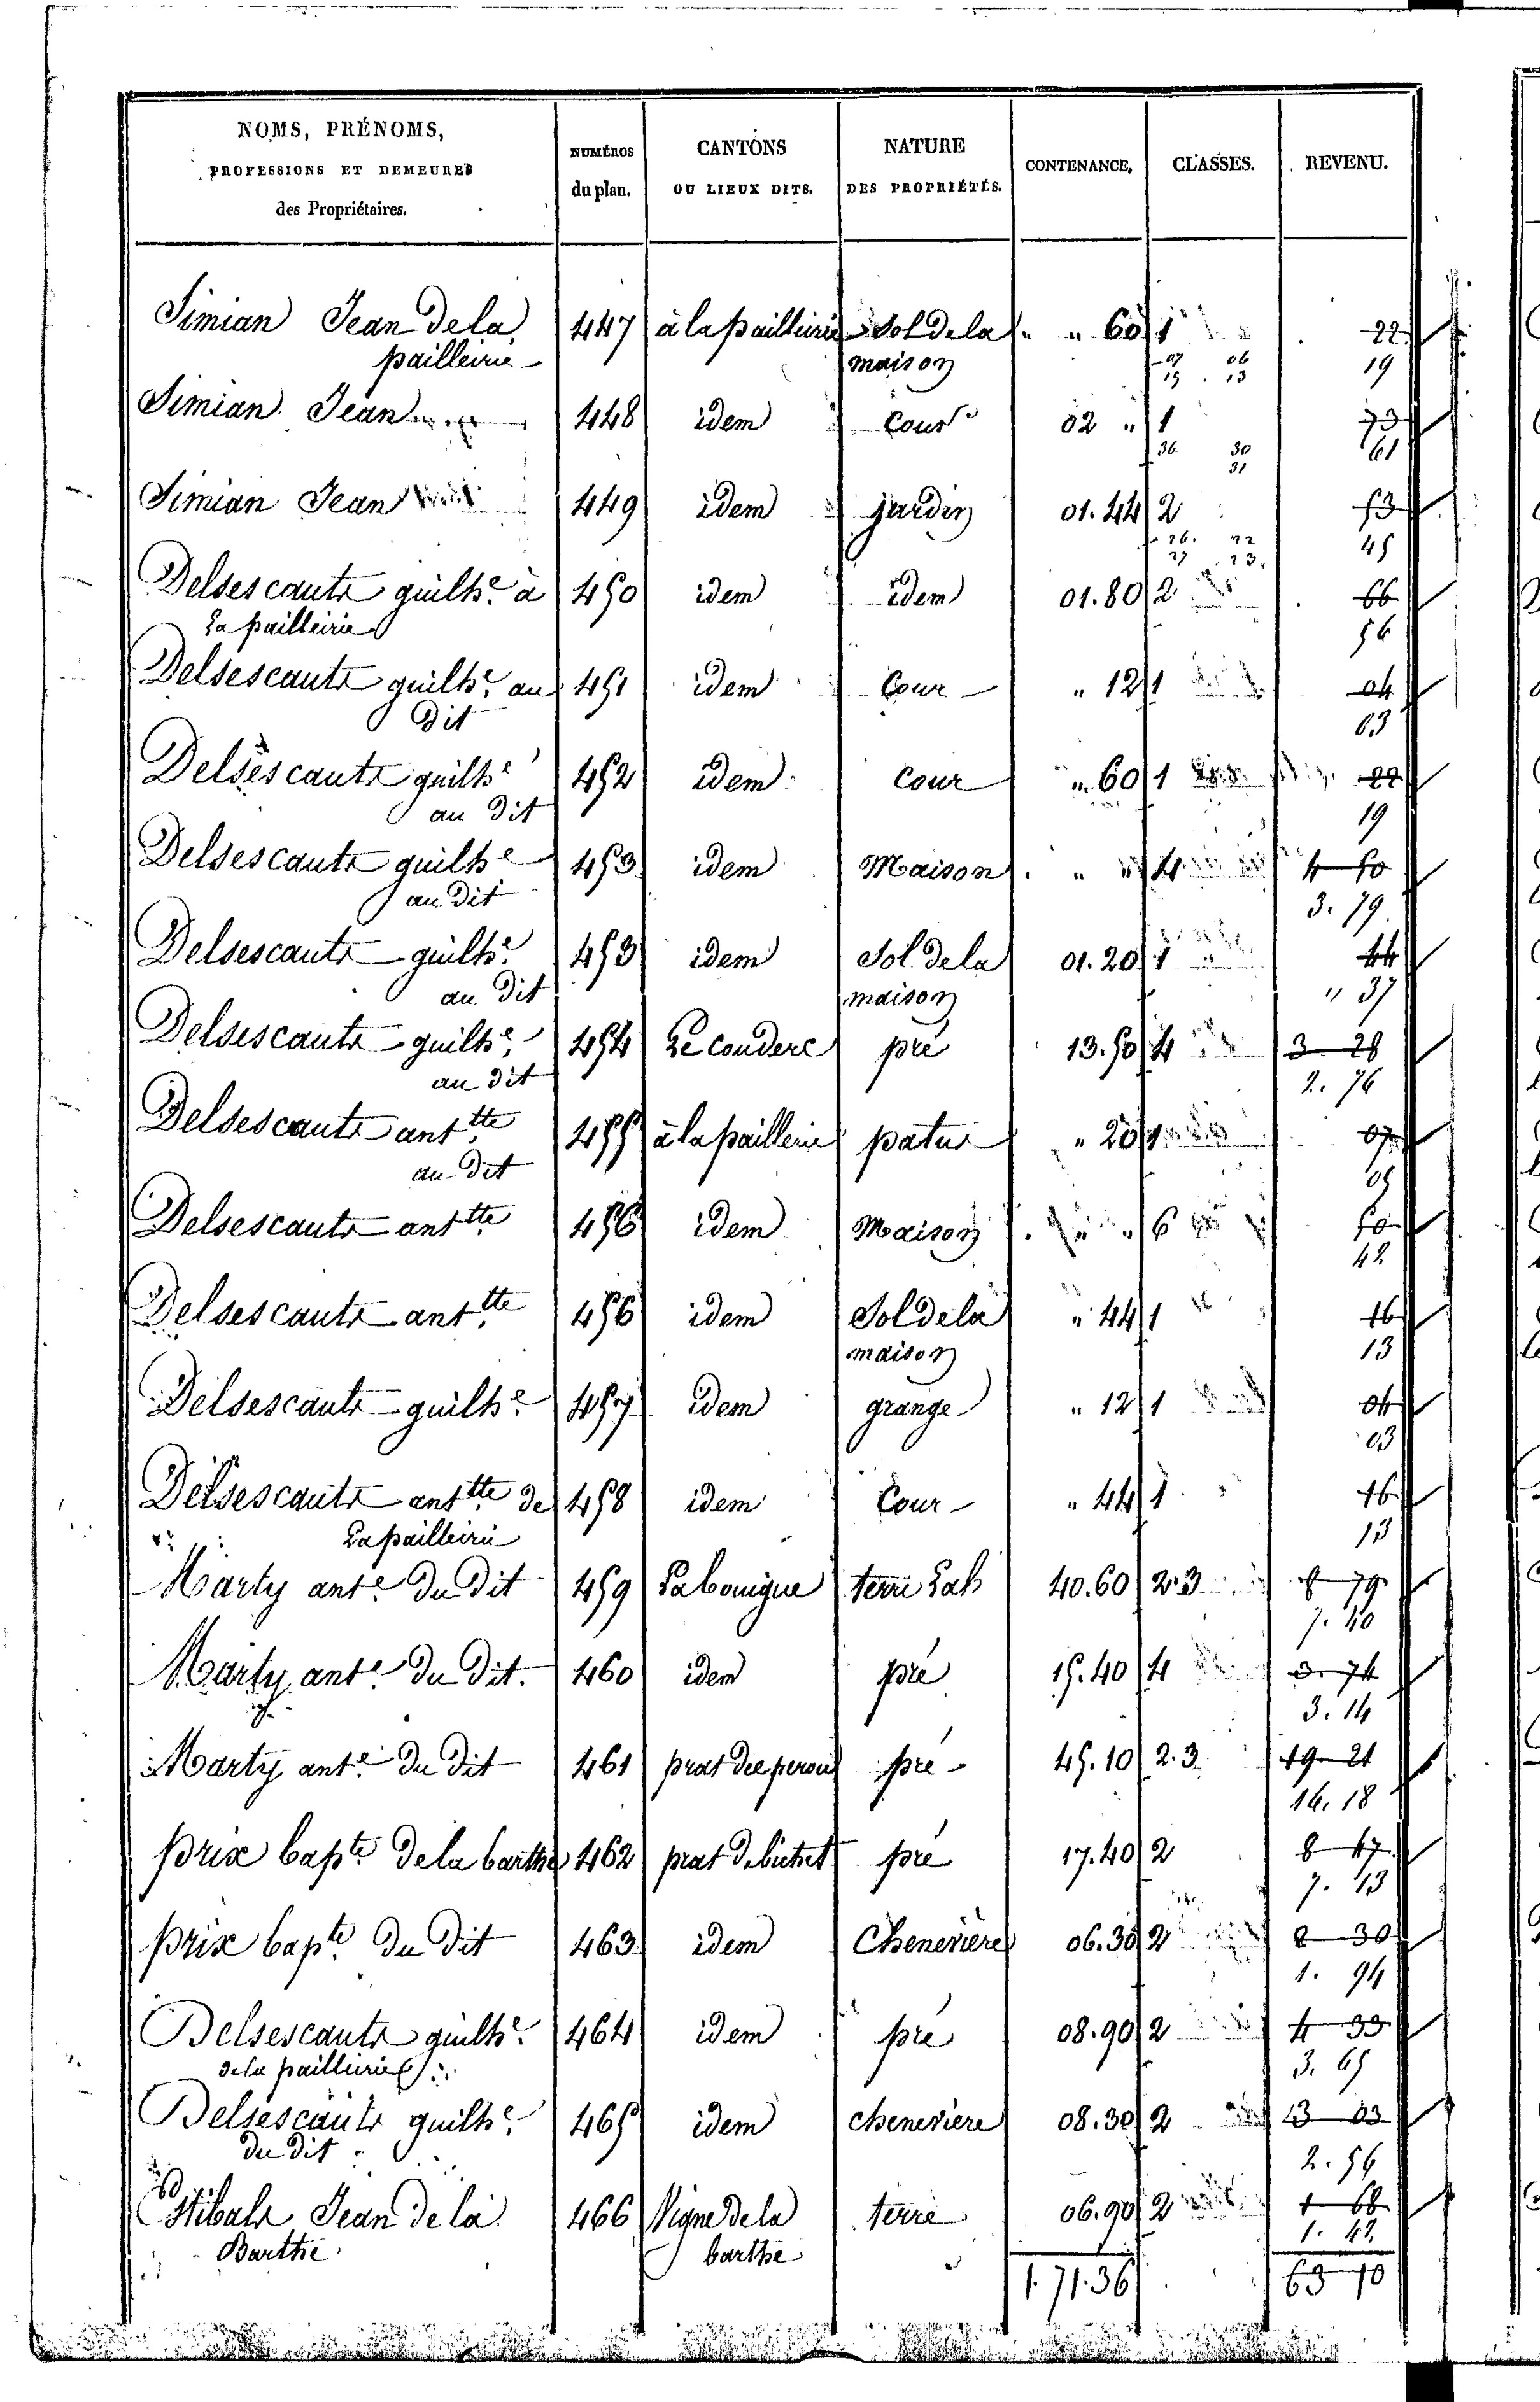 NOMS, PRÉNOMS, PROFESSIONS ET DEMEURES des Propriétaires. | NUMÉROS du plan. | CANTONS OU LIEUX DITS. | NATURE DES PROPRIÉTÉS. | CONTENANCE. | CLASSES. | REVENU.
Simian Jean de la 447 à la pailleirie Sol de la " " 60 1 22
pailleirie maison 07 06 19
15 . 13
Simian Jean 448 idem Cour 02 " 1 73
36 30 61
31
Simian Jean 449 idem jardin 01.44 2 53
26. 22 45
27 23.
Delsescauts guilhe. à 450 idem idem 01.80 2 66
La pailleirie 56
Delsescauts guilhe. au 451 idem Cour " 12 1 04
dit 03
Delsescauts guilhe 452 idem Cour " 60 1 22
au dit 19
Delsescauts guilhe 453 idem Maison " " 4 4 50
au dit 3. 79
Delsescauts guilhe. 453 idem Sol de la 01.20 1 44
au dit maison " 37
Delsescauts guilhe. 454 Le Couderc pré 13.50 4 3 28
au dit 2. 76
Delsescauts antte. 455 à la paillerie patus " 20 1 07
au dit 05
Delsescauts antte. 456 idem Maison " " 6 50
42
Delsescauts antte. 456 idem Sol de la " 44 1 16
maison 13
Delsescauts guilhe. 457 idem grange " 12 1 04
03
Delsescauts antte. de 458 idem Cour " 44 1 16
La pailleirie 13
Marty ante. du dit 459 La bouigue terre Lab 40.60 2.3 8 79
7. 40
Marty ante. du dit. 460 idem pré 15.40 4 3. 74
3. 14
Marty ante. du dit 461 prat del perou pré 45.10 2.3 19 21
16. 18
prix bapte. de la barthe 462 prat pré 17.40 2 8 47
7. 13
prix bapte. du dit 463 idem Chenevière 06.30 2 2 30
1. 94
Delsescauts guilhe. 464 idem pré 08.90 2 4 33
de la pailleirie 3. 65
Delsescauts guilhe. 465 idem chenevière 08.30 2 3 03
du dit 2. 56
Estibals Jean de la 466 Vigne de la terre 06.90 2 1 68
Barthe barthe 1. 42
1.71.36 63 10